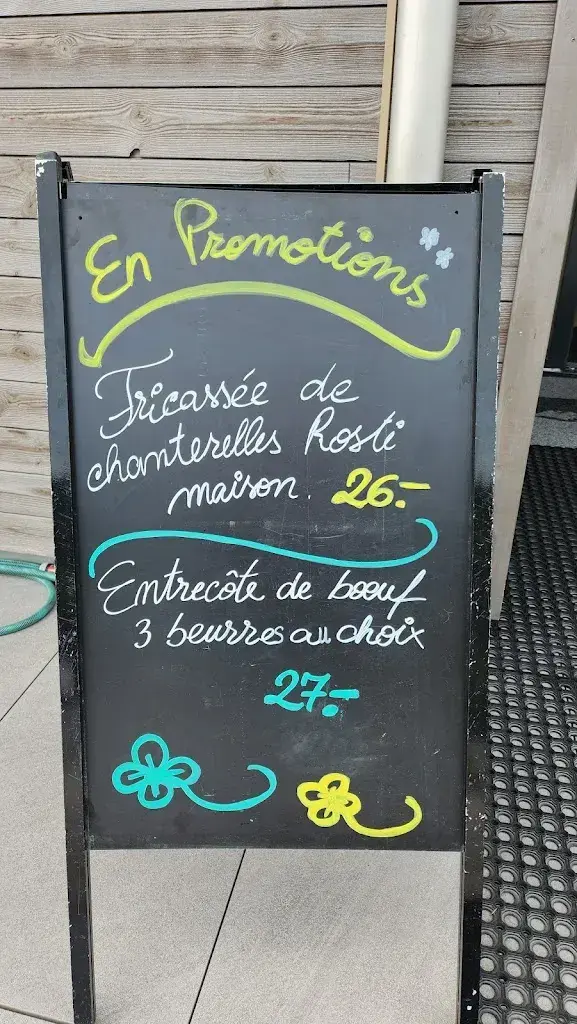 En Promotions
Fricassée de
chanterelles Rosti
maison. 26.-
Entrecôte de boeuf
3 beurres au choix
27.-